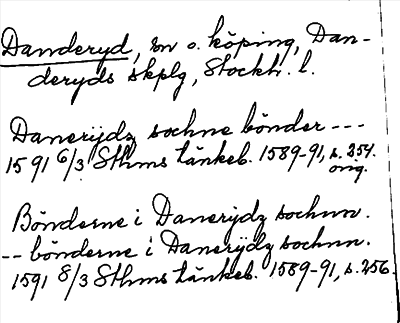 Danderyd, sn o. köping, Dan-
deryds skplg, Stockh. l.
Danerijdz sochne bönder ---
1591 6/3 Sthms tänkeb. 1589-91, s. 254.
orig.
Bönderne i Danerijdz sochnn.
-- bönderne i Danerijdz sochnn.
1591 8/3 Sthms tänkeb. 1589-91, s. 256.